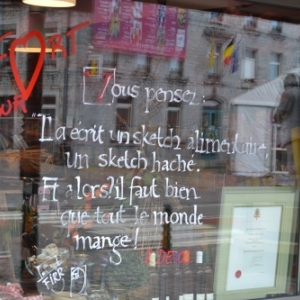 FORT
Vous pensez:
"Il a écrit un sketch alimentaire,
un sketch haché.
Et alors? il faut bien
que tout le monde
mange!